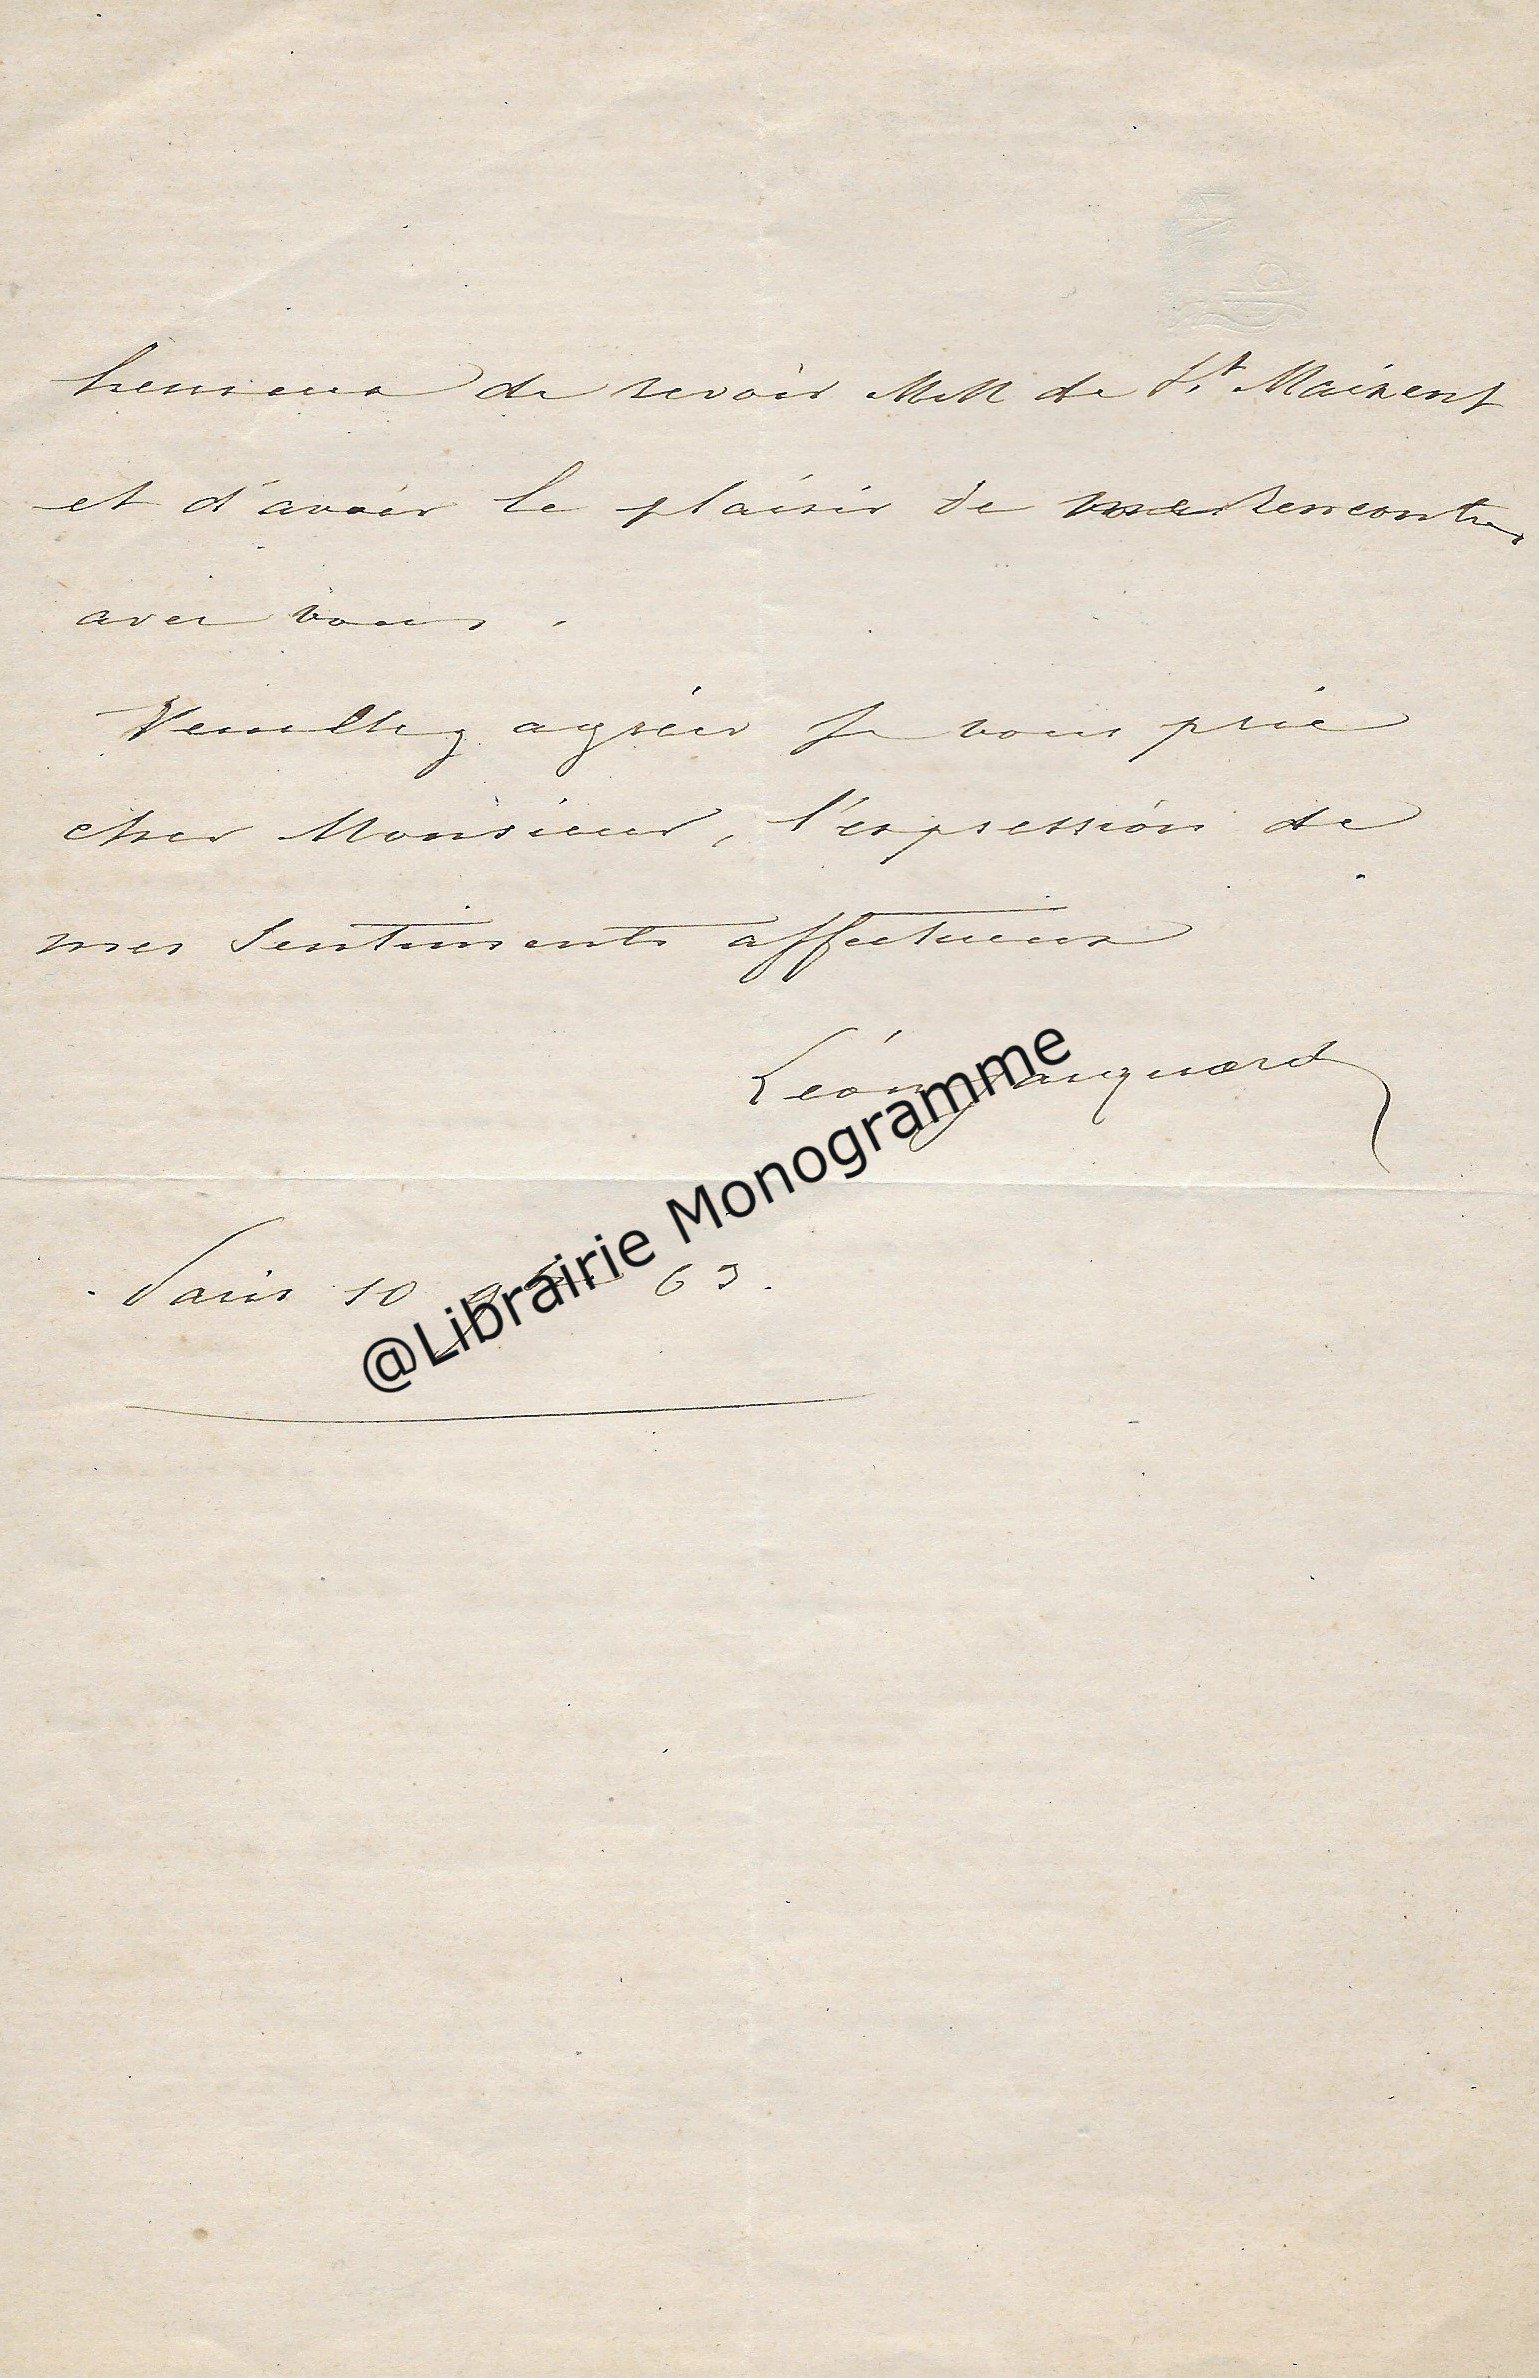 heureux de revoir MM de St Maixent
et d'avoir le plaisir de rencontrer
avec vous.
Veuillez agréer je vous prie
cher Monsieur, l'expression de
mes Sentiments affectueux
Léon Jacquard
Paris 10 63.
@Librairie Monogramme